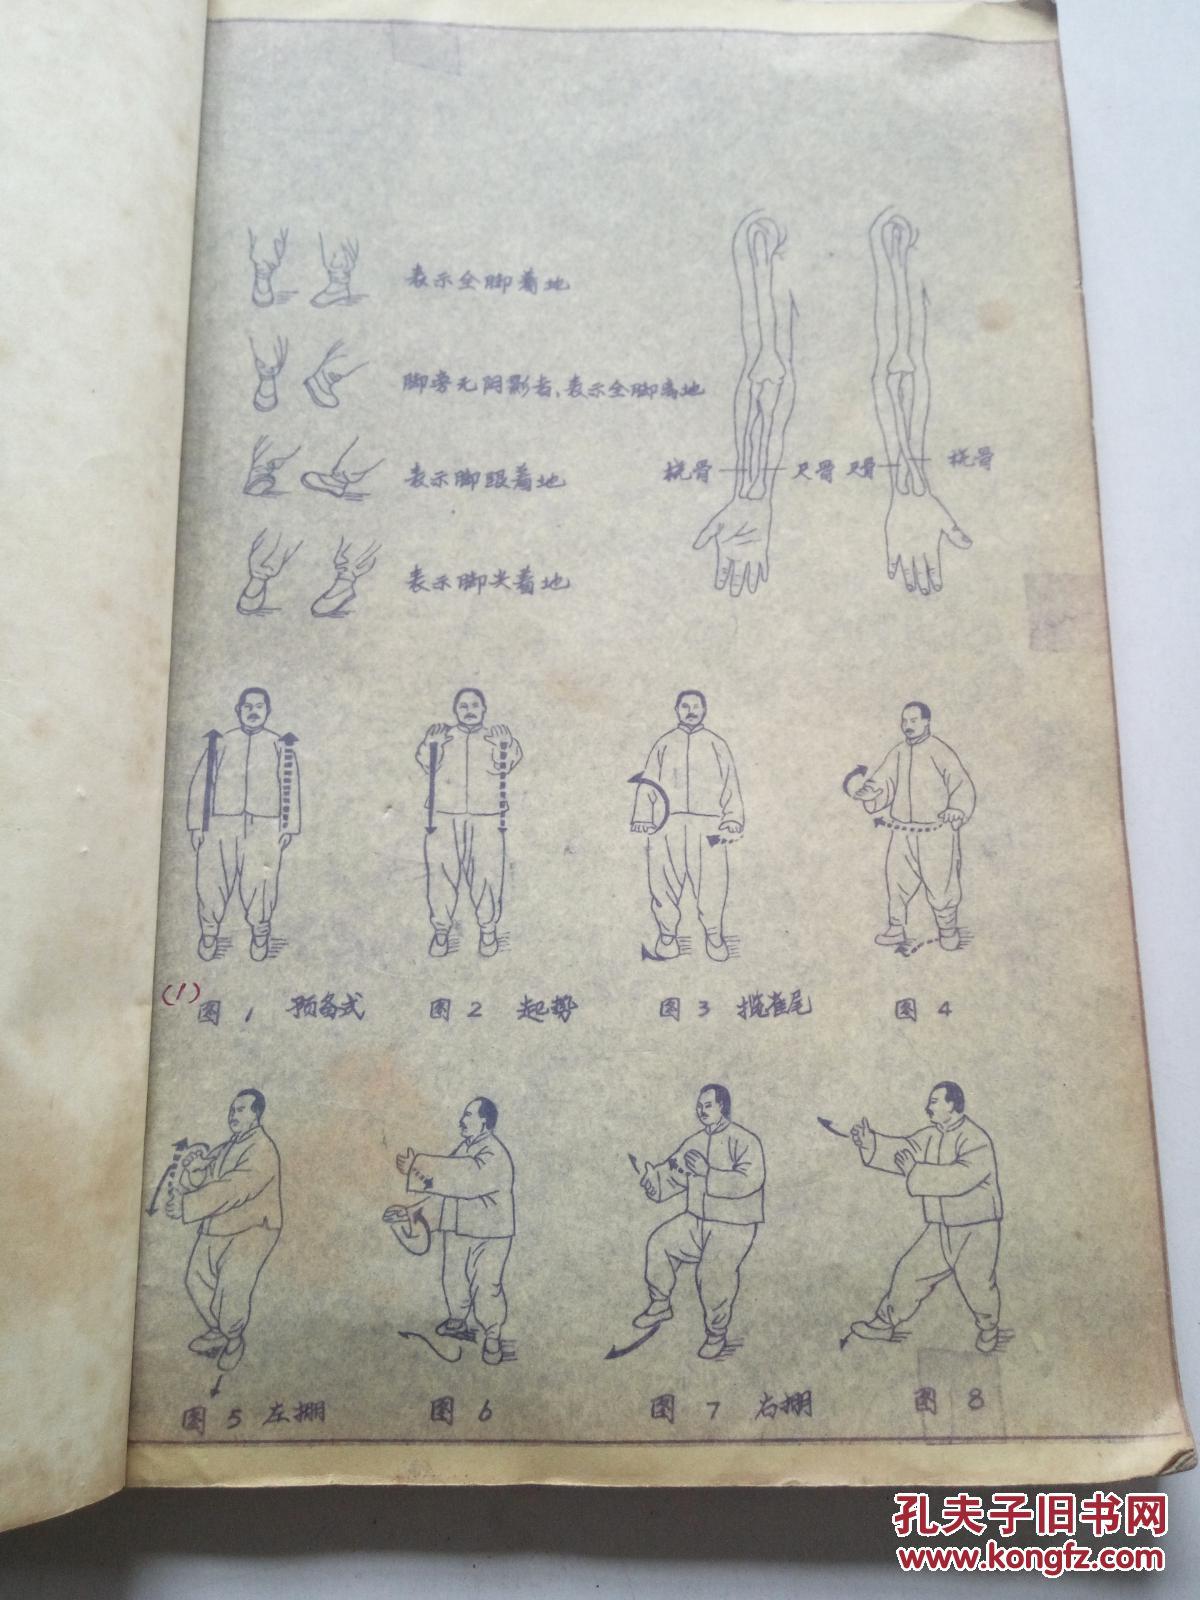 表示全脚着地
脚旁无阴影者、表示全脚离地
表示脚跟着地
表示脚尖着地
桡骨 尺骨 尺骨 桡骨
(1)
图 1 预备式 图 2 起势 图 3 揽雀尾 图 4
图 5 左掤 图 6 图 7 右掤 图 8
孔夫子旧书网
www.kongfz.com